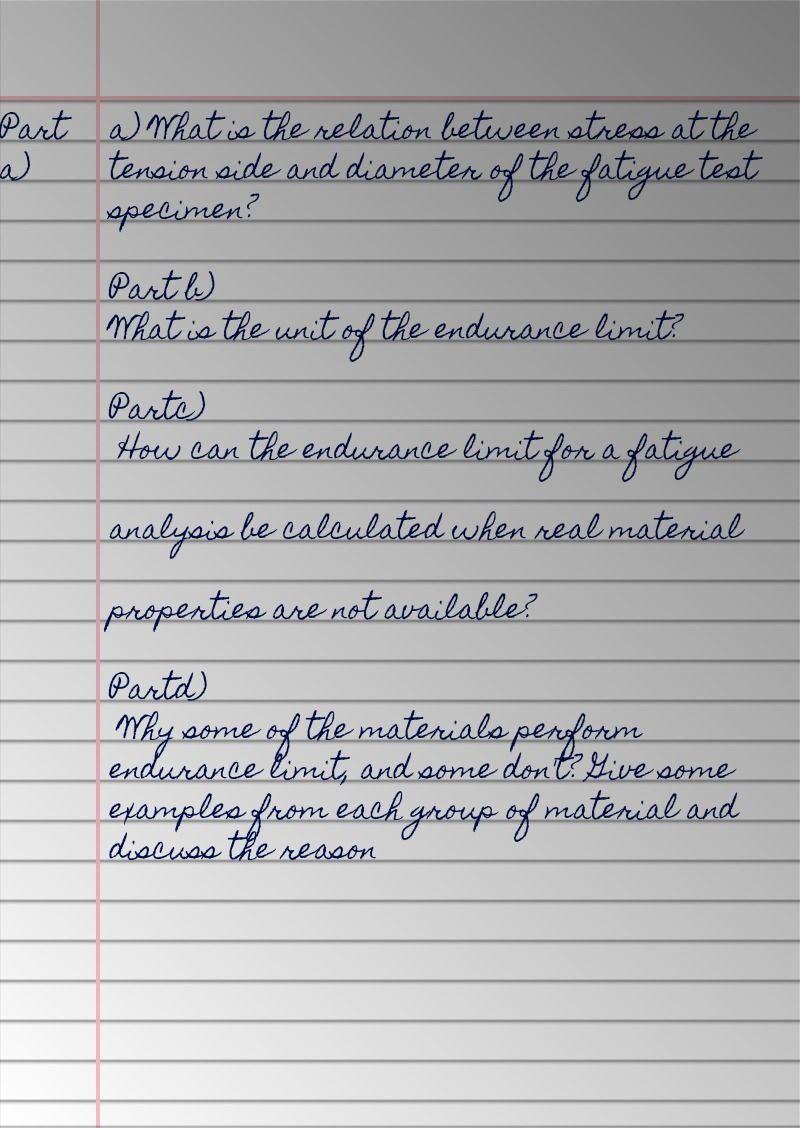 Part a) What is the relation between stress at the
a) tension side and diameter of the fatigue test
specimen?
Part b)
What is the unit of the endurance limit?
Part c)
How can the endurance limit for a fatigue
analysis be calculated when real material
properties are not available?
Part d)
Why some of the materials perform
endurance limit, and some don't? Give some
examples from each group of material and
discuss the reason